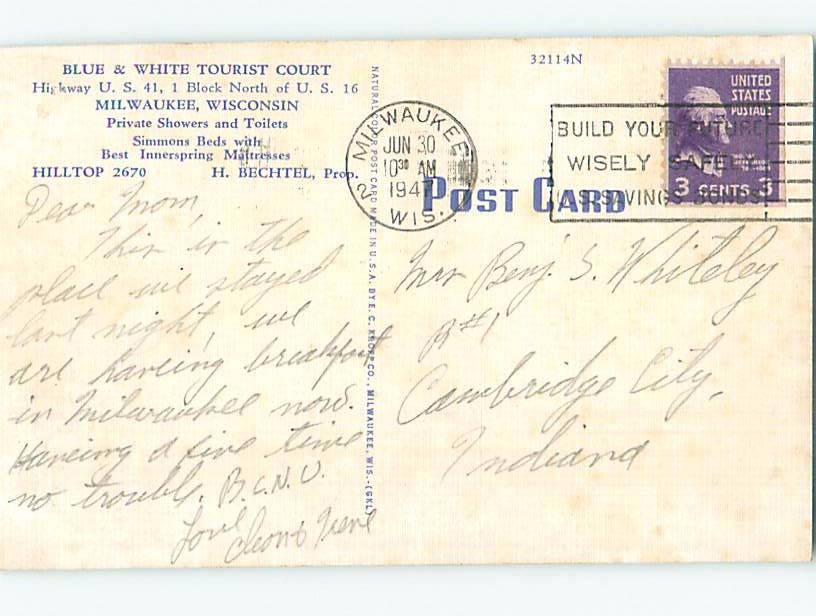 BLUE & WHITE TOURIST COURT
Highway U. S. 41, 1 Block North of U. S. 16
MILWAUKEE, WISCONSIN
Private Showers and Toilets
Simmons Beds with
Best Innerspring Mattresses
HILLTOP 2670 H. BECHTEL, Prop.
Dear Mom,
This is the
place we stayed
last night, we
are haveing breakfast
in Milwaukee now.
Haveing a fine time
no trouble. B.C.N.U.
Love
Irene
NATURAL COLOR POST CARD MADE IN U.S.A. BY E. C. KROPP CO., MILWAUKEE, WIS.-(GKL)
32114N
MILWAUKEE
2
JUN 30
10 30 AM
194
WIS.
POST CARD
BUILD YOUR FUTURE
WISELY SAFELY
U.S. SAVINGS BONDS
UNITED
STATES
POSTAGE
3 CENTS 3
Mrs Benj. S. Whiteley
R#1
Cambridge City,
Indiana